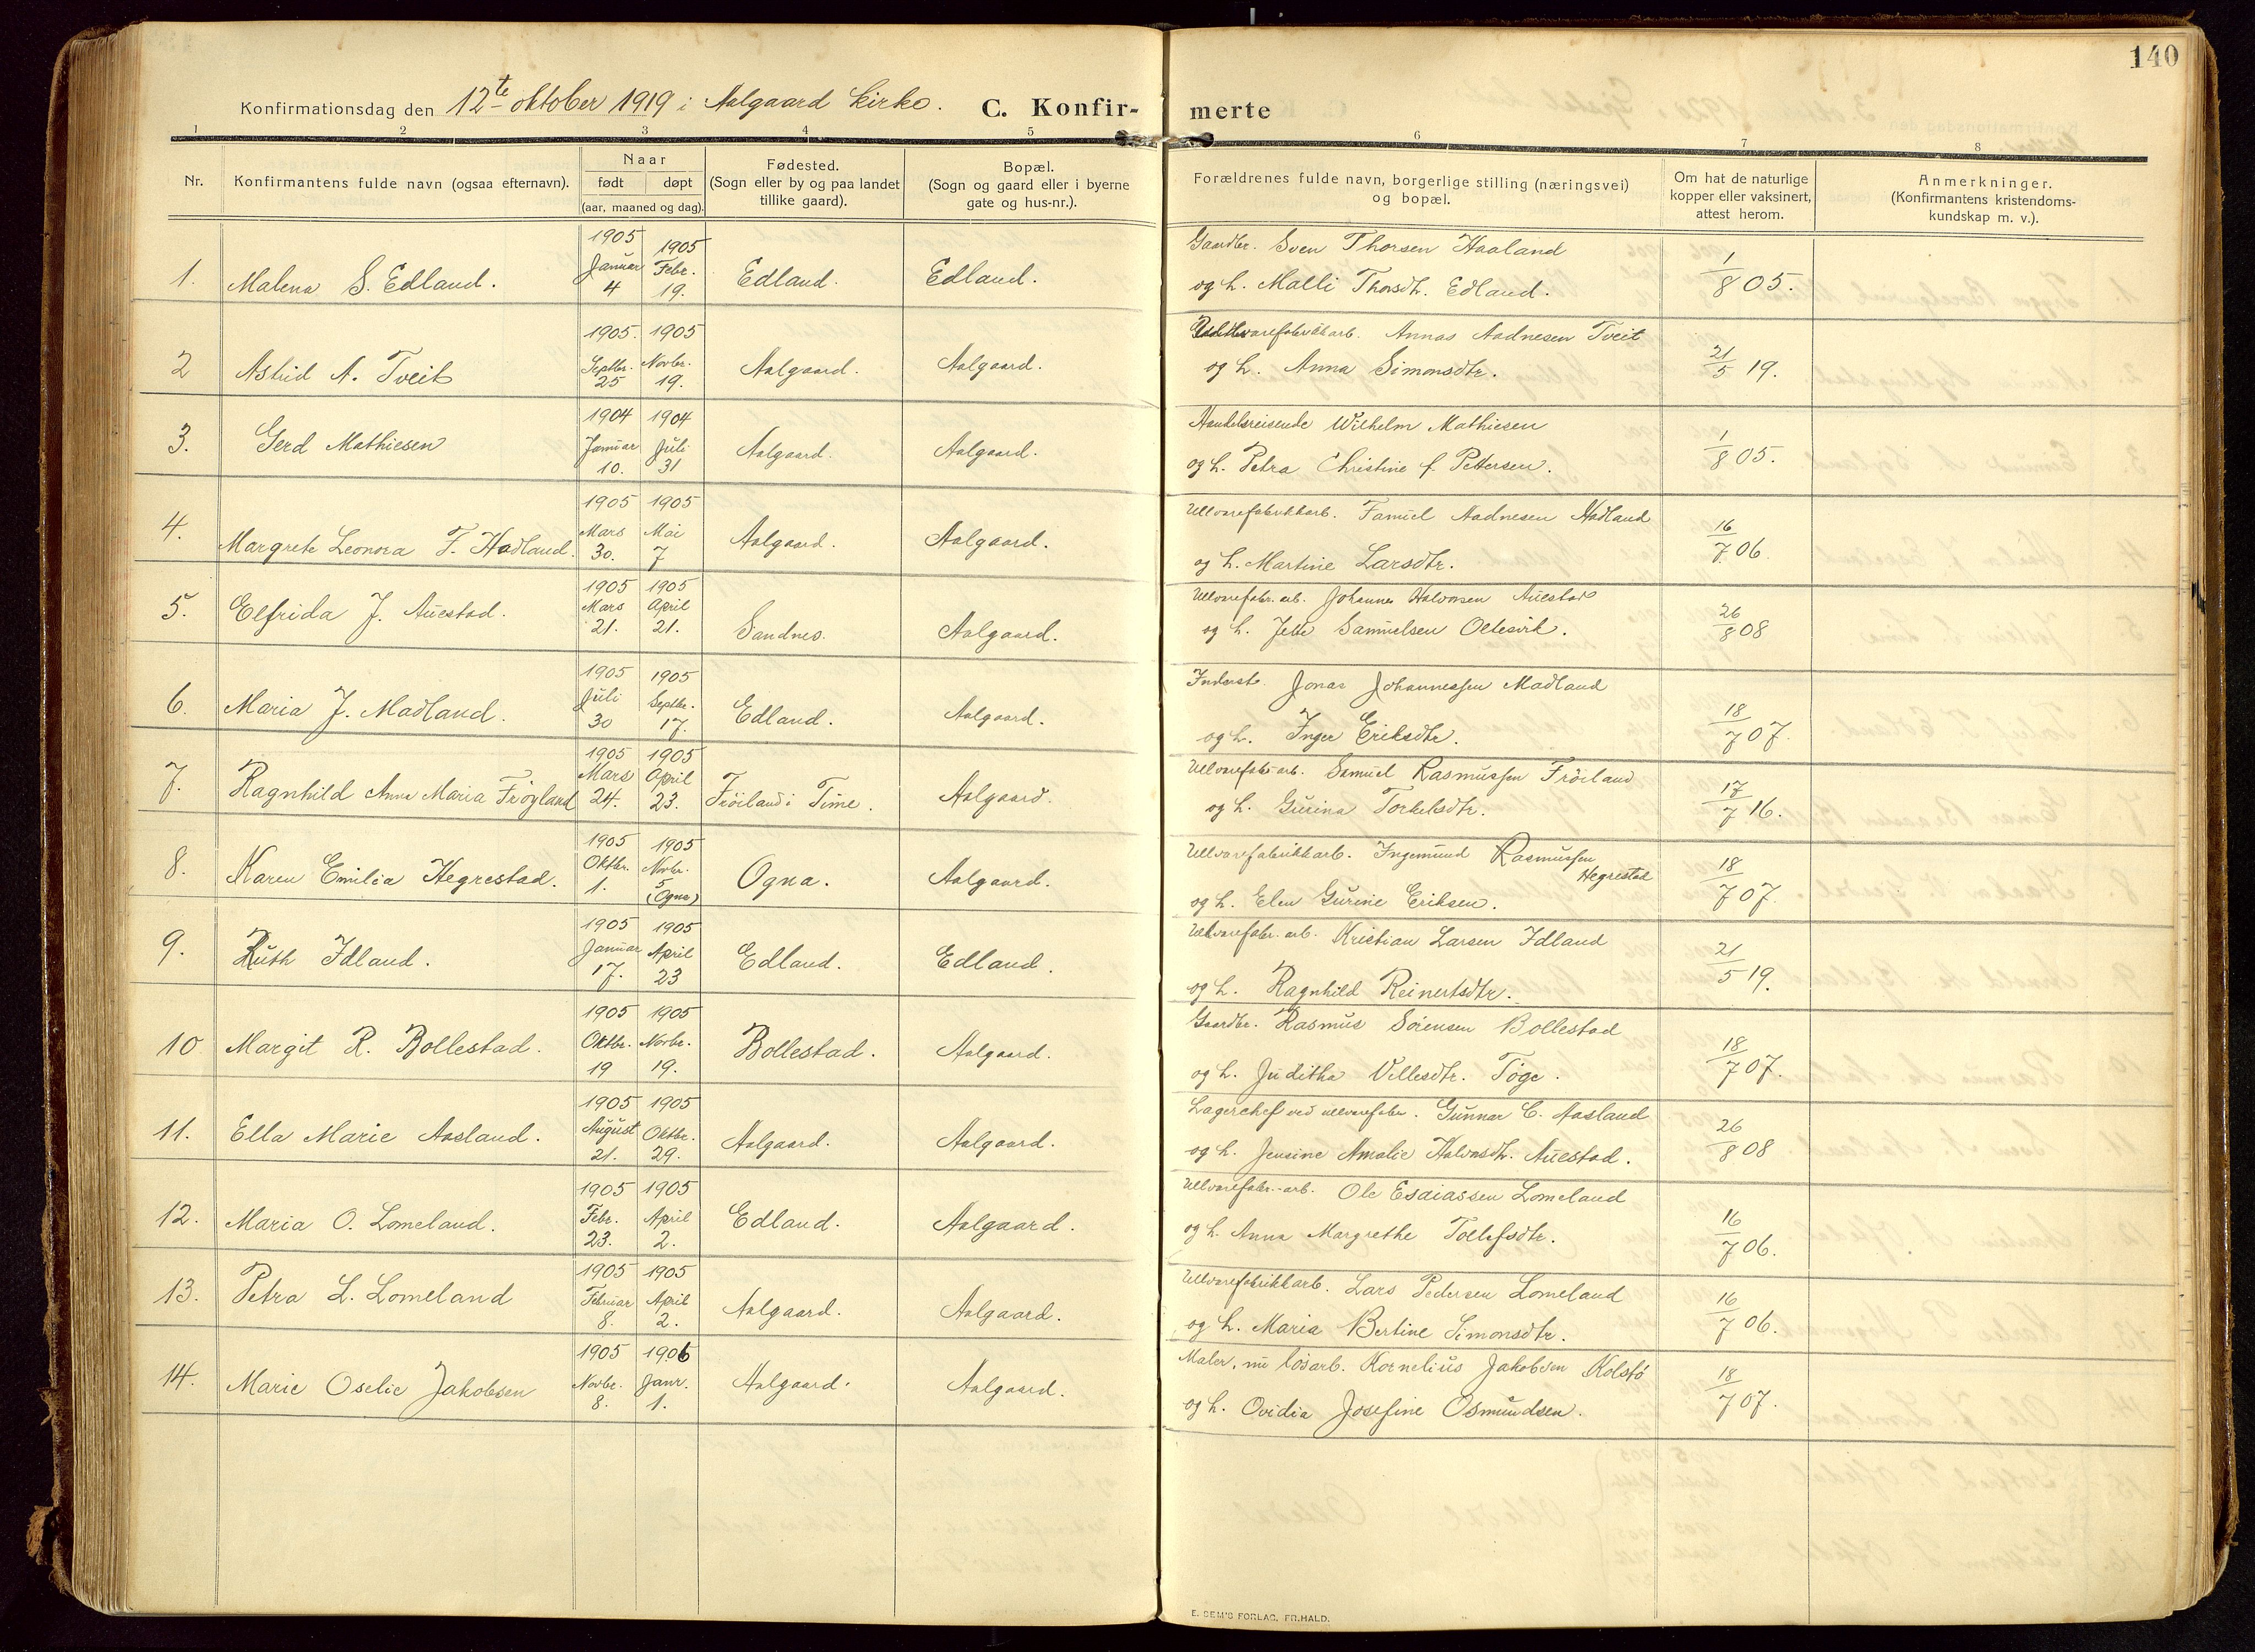 140
Konfirmationsdag den 12te oktober 1919 i Aalgaard kirke. C. Konfir- merte
1 2 3 4 5 6 7 8
Nr. Konfirmantens fulde navn (ogsaa efternavn).
Naar
født døpt
(aar, maaned og dag).
Fødested.
(Sogn eller by og paa landet
tillike gaard).
Bopæl.
(Sogn og gaard eller i byerne
gate og hus-nr.).
Forældrenes fulde navn, borgerlige stilling (næringsvei)
og bopæl.
Om hat de naturlige
kopper eller vaksinert,
attest herom.
Anmerkninger.
(Konfirmantens kristendoms-
kundskap m. v.).
1. Malena S. Edland. 1905 Januar 4 1905 Febr. 19. Edland. Edland.
Gaardbr. Sven Thorsen Haaland
og h. Malli Thorsdtr. Edland. 1/8 05.
2 Astrid A. Tveit 1905. Septbr. 25 1905 Novbr. 19. Aalgaard. Aalgaard.
Uldvarefabrikkarb. Annas Aadnesen Tveit
og h. Anna Simonsdtr. 21/5 19.
3. Gerd Mathiesen 1904 Januar 10. 1904 Juli 31 Aalgaard. Aalgaard.
Handelsreisende Wilhelm Mathiesen
og h. Petra Christine f. Pettersen. 1/8 05.
4. Margrete Leonora F. Hadland. 1905 Mars 30. 1905 Mai 7 Aalgaard. Aalgaard.
Ullvarefabrikkarb. Famuel Aadnesen Hadland
og h. Martine Larsdtr. 16/7 06
5. Elfrida J. Auestad. 1905 Mars 21. 1905 April 21. Sandnes. Aalgaard.
Ullvarefabr. arb. Johannes Halvorsen Auestad
og h. Jette Samuelsen Oltesvik. 26/8 08
6. Maria J. Madland. 1905 Juli 30 1905 Septbr. 17. Edland. Aalgaard.
Inderst. Jonas Johannessen Madland
og h. Inger Eriksdtr. 18/7 07.
7. Ragnhild Anna Maria Frøyland 1905 Mars 24. 1905 April 23. Frøiland i Time. Aalgaard.
Ullvarefabr. arb. Samuel Rasmussen Frøiland
og h. Gurina Torkelsdtr. 17/7 16.
8. Karen Emilia Hegrestad. 1905 Oktbr. 1. 1905 Novbr. 5 (Ogna) Ogna. Aalgaard.
Ullvarefabrikkarb. Ingemund Rasmussen
Hegrestad
og h. Elen Gurine Eriksen. 18/7 07.
9. Ruth Idland. 1905 Januar 17. 1905 April 23 Edland. Edland.
Ullvarefabr. arb. Kristian Larsen Idland
og h. Ragnhild Reinertsdtr. 21/5 19.
10 Margit R. Bollestad. 1905 Oktbr. 19 1905 Novbr. 19. Bollestad. Aalgaard.
Gaardbr. Rasmus Sørensen Bollestad
og h. Juditha Villesdtr. Tøge. 18/7 07.
11. Ella Marie Aasland. 1905 August 21. 1905 Oktbr. 29. Aalgaard. Aalgaard.
Lagerchef ved ullvarefabr. Gunnar C. Aasland
og h. Jensine Amalie Halvorsdtr. Auestad. 26/8 08
12. Maria O. Lomeland. 1905 Febr. 23. 1905 April 2. Edland. Aalgaard.
Ullvarefabr.-arb. Ole Esaiassen Lomeland
og h. Anna Margrethe Tollefsdtr. 16/7 06.
13. Petra L. Lomeland 1905 Februar 8. 1905 April 2. Aalgaard. Aalgaard.
Ullvarefabrikkarb. Lars Pedersen Lomeland
og h. Maria Bertine Simonsdtr. 16/7 06.
14. Marie Oselie Jakobsen 1905 Novbr. 8. 1906 Janr. 1. Aalgaard. Aalgaard.
Maler, nu løsarb. Kornelius Jakobsen Kolstø
og h. Ovidia Josefine Osmundsen. 18/7 07.
E. SEM'S FORLAG, FR.HALD.